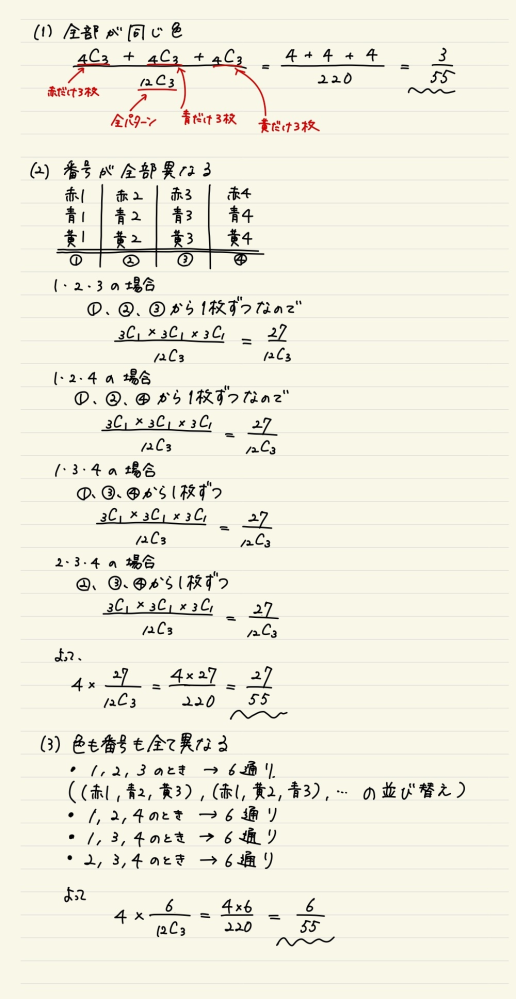 (1) 全部が同じ色
(4C3 + 4C3 + 4C3) / 12C3 = (4 + 4 + 4) / 220 = 3/55
赤だけ3枚
全パターン
青だけ3枚
黄だけ3枚
(2) 番号が全部異なる
赤1 赤2 赤3 赤4
青1 青2 青3 青4
黄1 黄2 黄3 黄4
① ② ③ ④
1・2・3の場合
①、②、③から1枚ずつなので
(3C1 × 3C1 × 3C1) / 12C3 = 27 / 12C3
1・2・4の場合
①、②、④から1枚ずつなので
(3C1 × 3C1 × 3C1) / 12C3 = 27 / 12C3
1・3・4の場合
①、③、④から1枚ずつ
(3C1 × 3C1 × 3C1) / 12C3 = 27 / 12C3
2・3・4の場合
②、③、④から1枚ずつ
(3C1 × 3C1 × 3C1) / 12C3 = 27 / 12C3
よって、
4 × 27 / 12C3 = (4×27) / 220 = 27/55
(3) 色も番号も全て異なる
・ 1, 2, 3のとき → 6通り
((赤1, 青2, 黄3), (赤1, 黄2, 青3), … の並び替え)
・ 1, 2, 4のとき → 6通り
・ 1, 3, 4のとき → 6通り
・ 2, 3, 4のとき → 6通り
よって
4 × 6 / 12C3 = (4×6) / 220 = 6/55